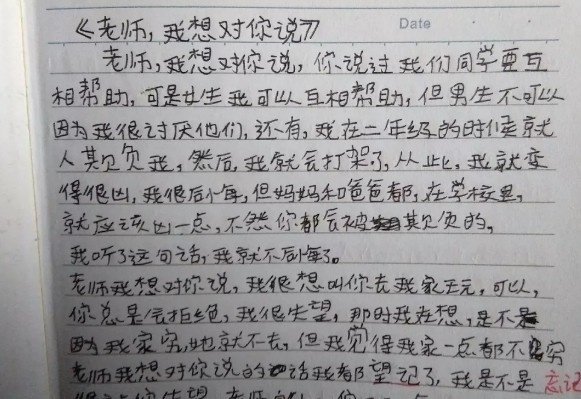 《老师,我想对你说》
Date
老师,我想对你说,你说过我们同学要互
相帮助,可是女生我可以互相帮助,但男生不可以
因为我很讨厌他们,还有,我在二年级的时候就
人其负我,然后,我就会打架了,从此,我就变
得很凶,我很后悔,但妈妈和爸爸都,在学校里,
就应该凶一点,不然你都会被其负的。
我听了这句话,我就不后悔了。
老师我想对你说,我很想叫你去我家玩,可以,
你总是会拒绝,我很失望,那时我在想,是不是
因为我家穷,她就不去,但我觉得我家一点都不穷
老师我想对你说的话我都望记了,我是不是 忘记